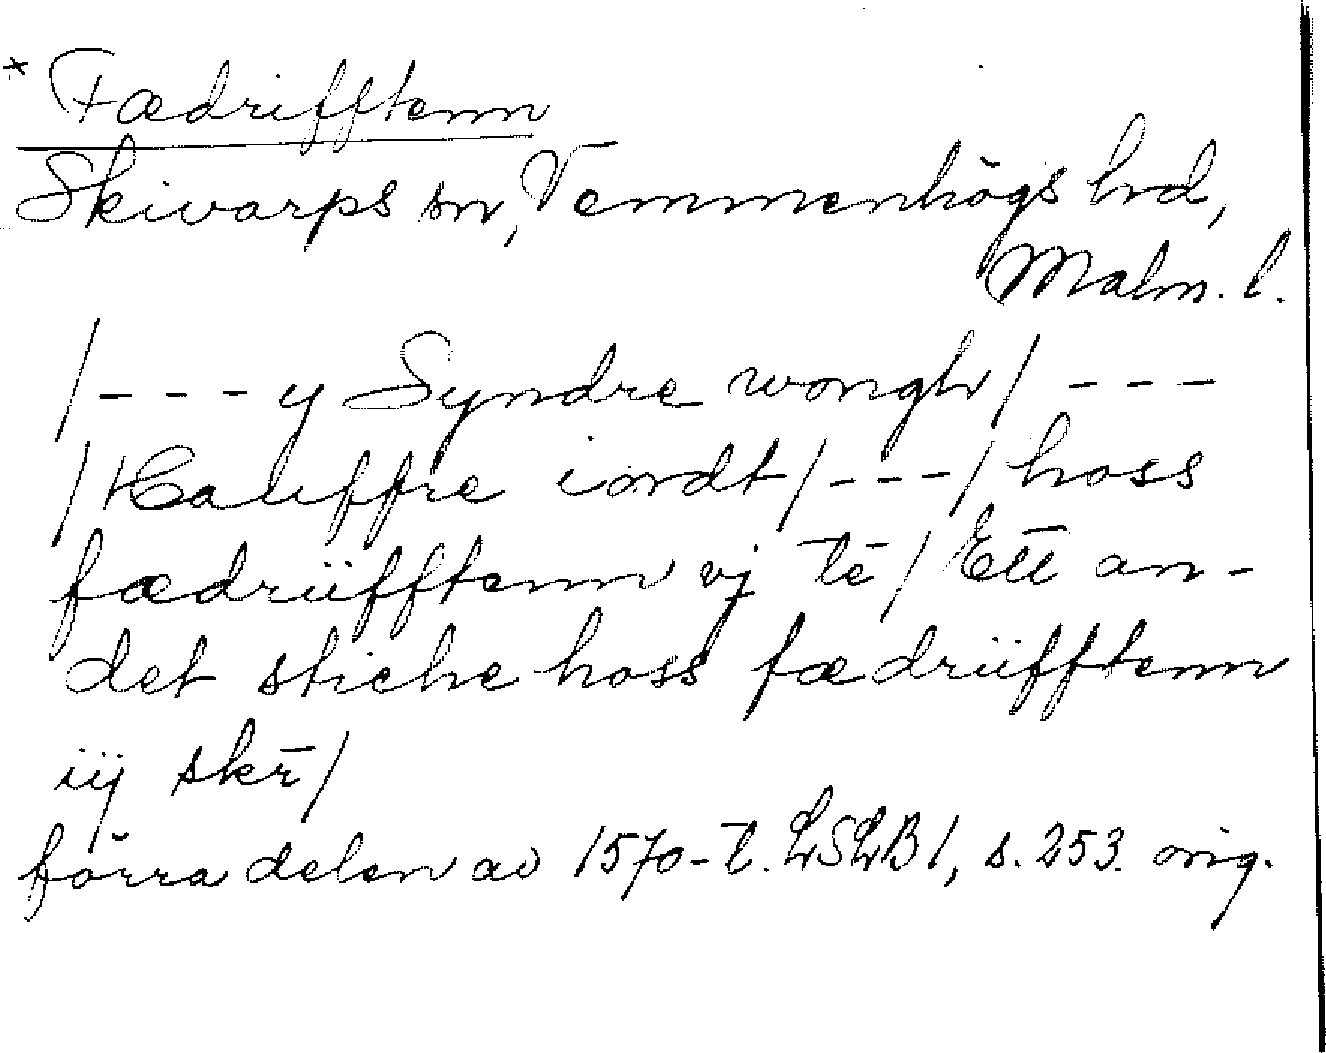 * Fædrifftenn
Skivarps sn, Vemmenhögs hd,
Malm. l.
/--- y Syndre wongh/ ---
/Hauffre iordt/---/ hoss
fædriifftenn vj tē/ Ett an-
det stiche hoss fædriifftenn
iij skr̄/
förra delen av 1570-t. LSLB 1, s. 253. orig.